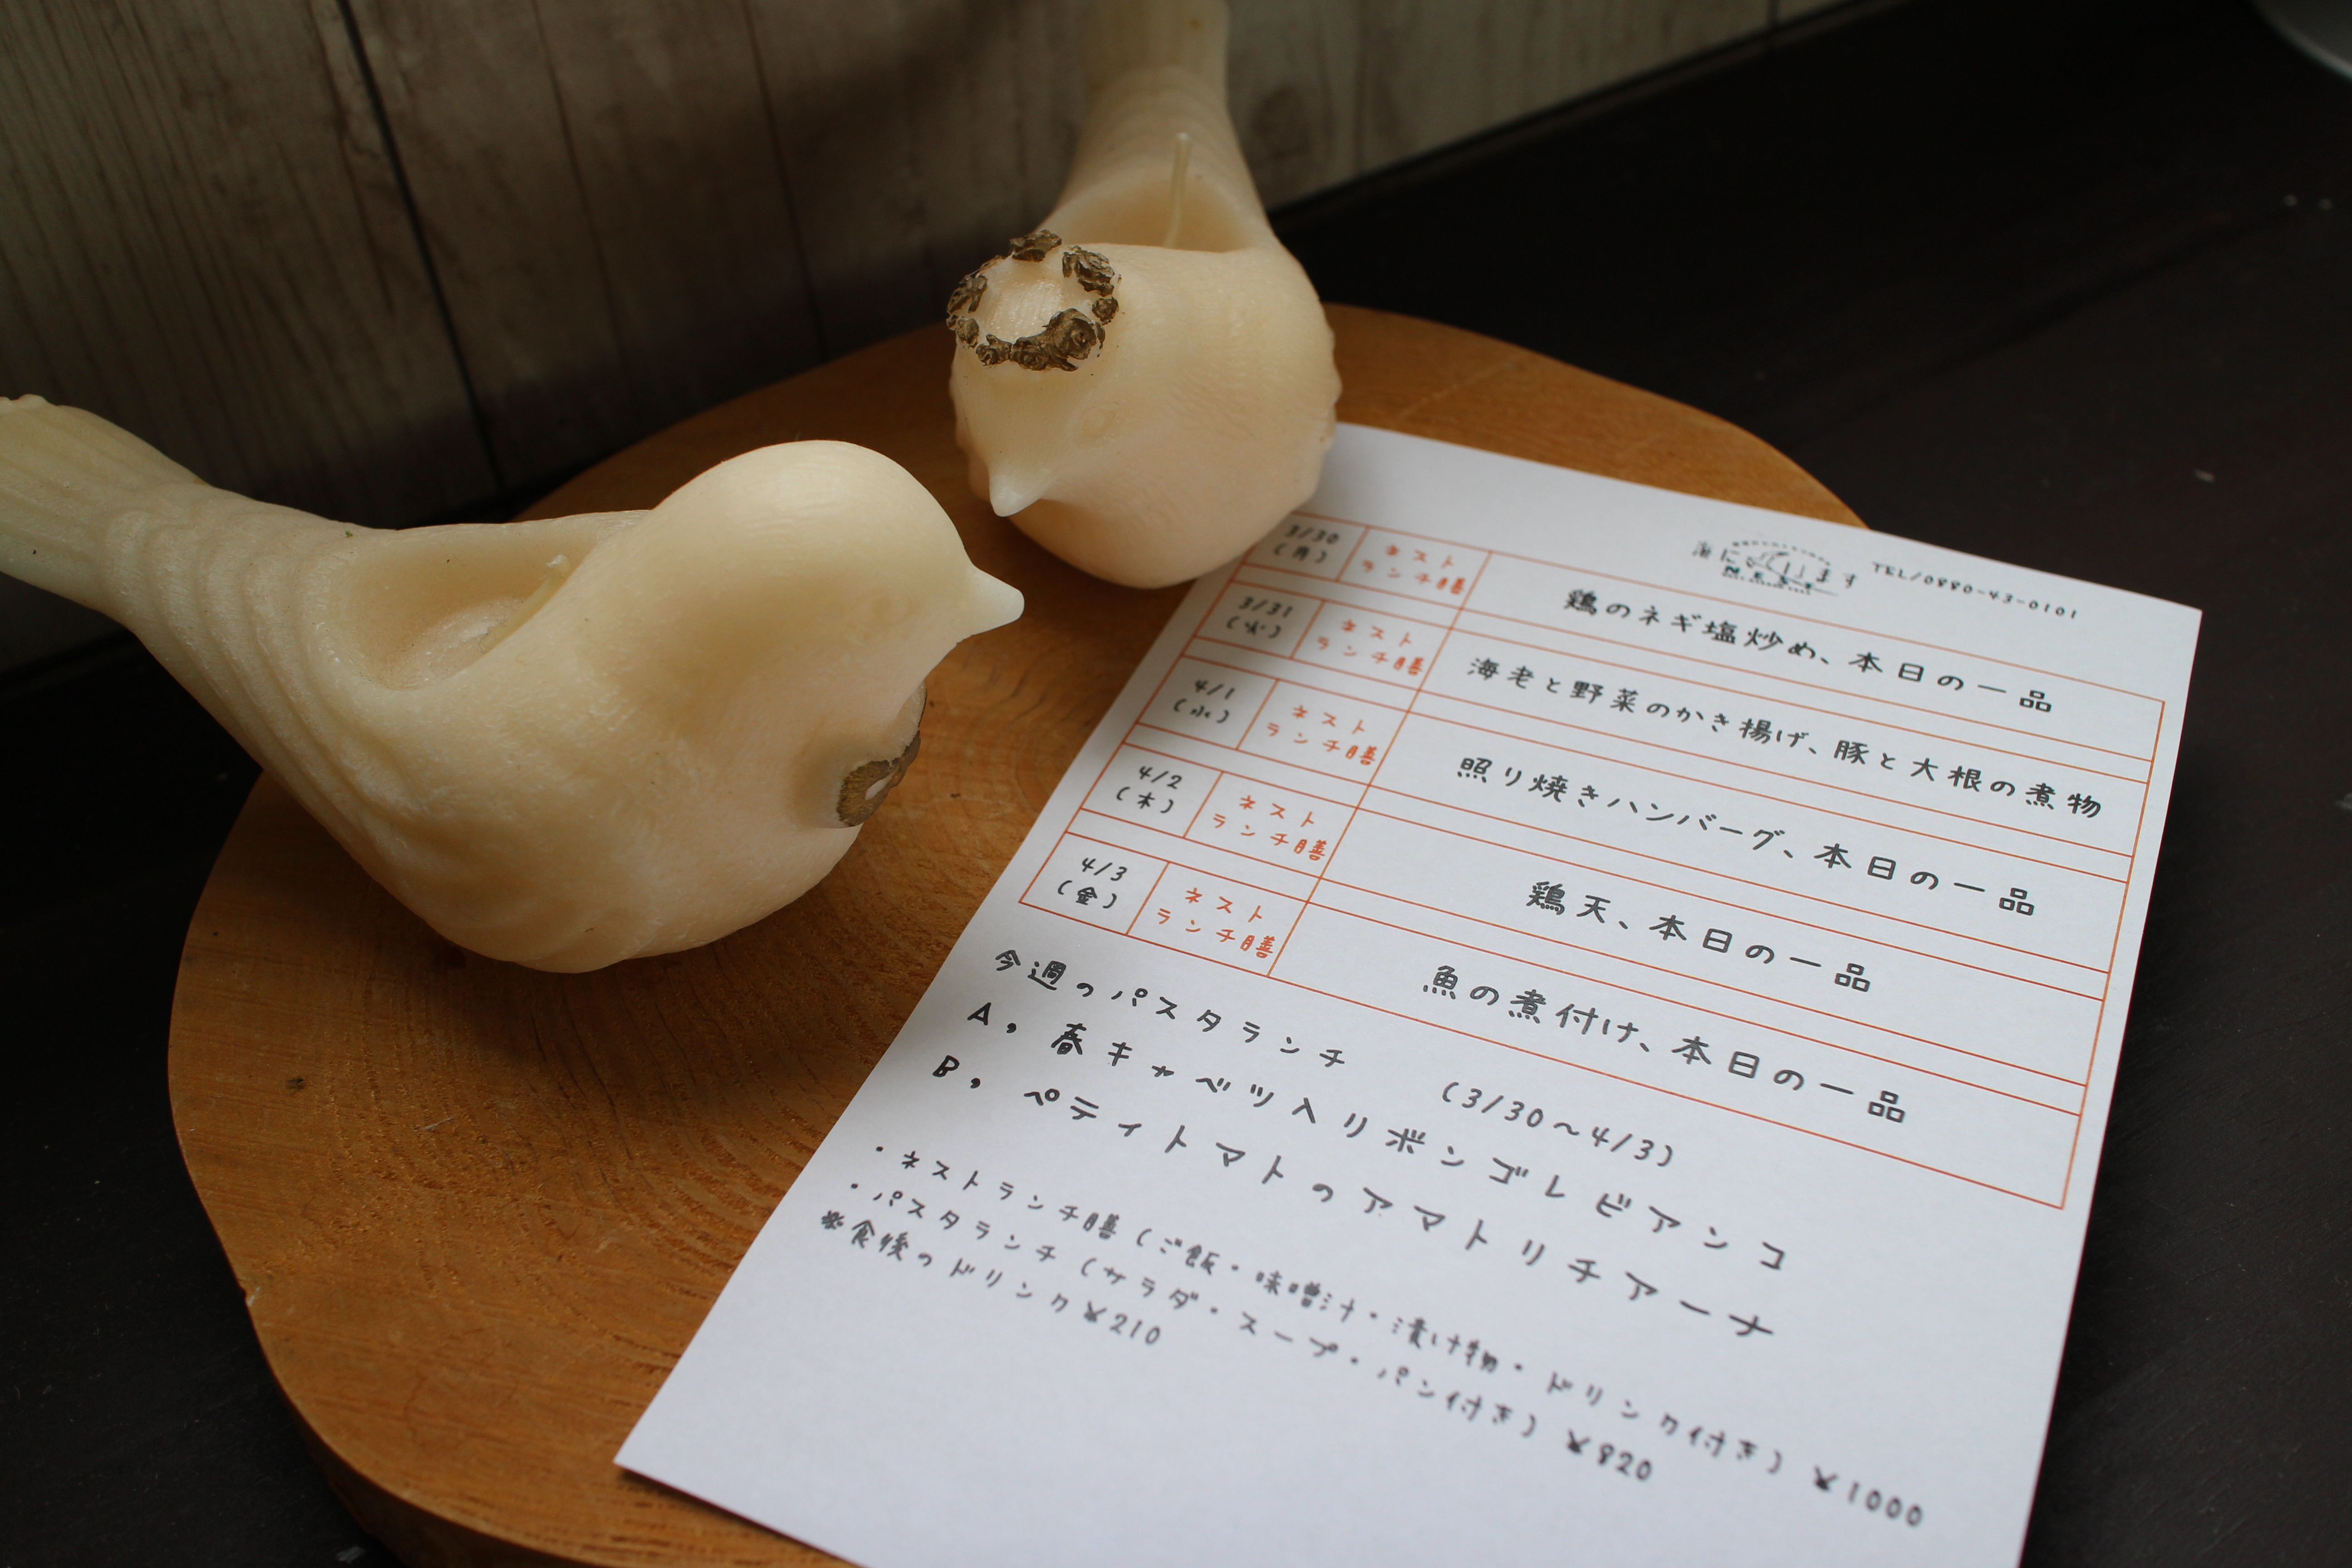 海にいます
NEST
TEL/0880-43-0101
3/30
(月)
ネスト
ランチ膳
鶏のネギ塩炒め、本日の一品
3/31
(火)
ネスト
ランチ膳
海老と野菜のかき揚げ、豚と大根の煮物
4/1
(水)
ネスト
ランチ膳
照り焼きハンバーグ、本日の一品
4/2
(木)
ネスト
ランチ膳
鶏天、本日の一品
4/3
(金)
ネスト
ランチ膳
魚の煮付け、本日の一品
今週のパスタランチ (3/30〜4/3)
A, 春キャベツ入りボンゴレビアンコ
B, ペティトマトのアマトリチアーナ
・ネストランチ膳(ご飯・味噌汁・漬け物・ドリンク付き)¥1000
・パスタランチ(サラダ・スープ・パン付き)¥820
※食後のドリンク¥210